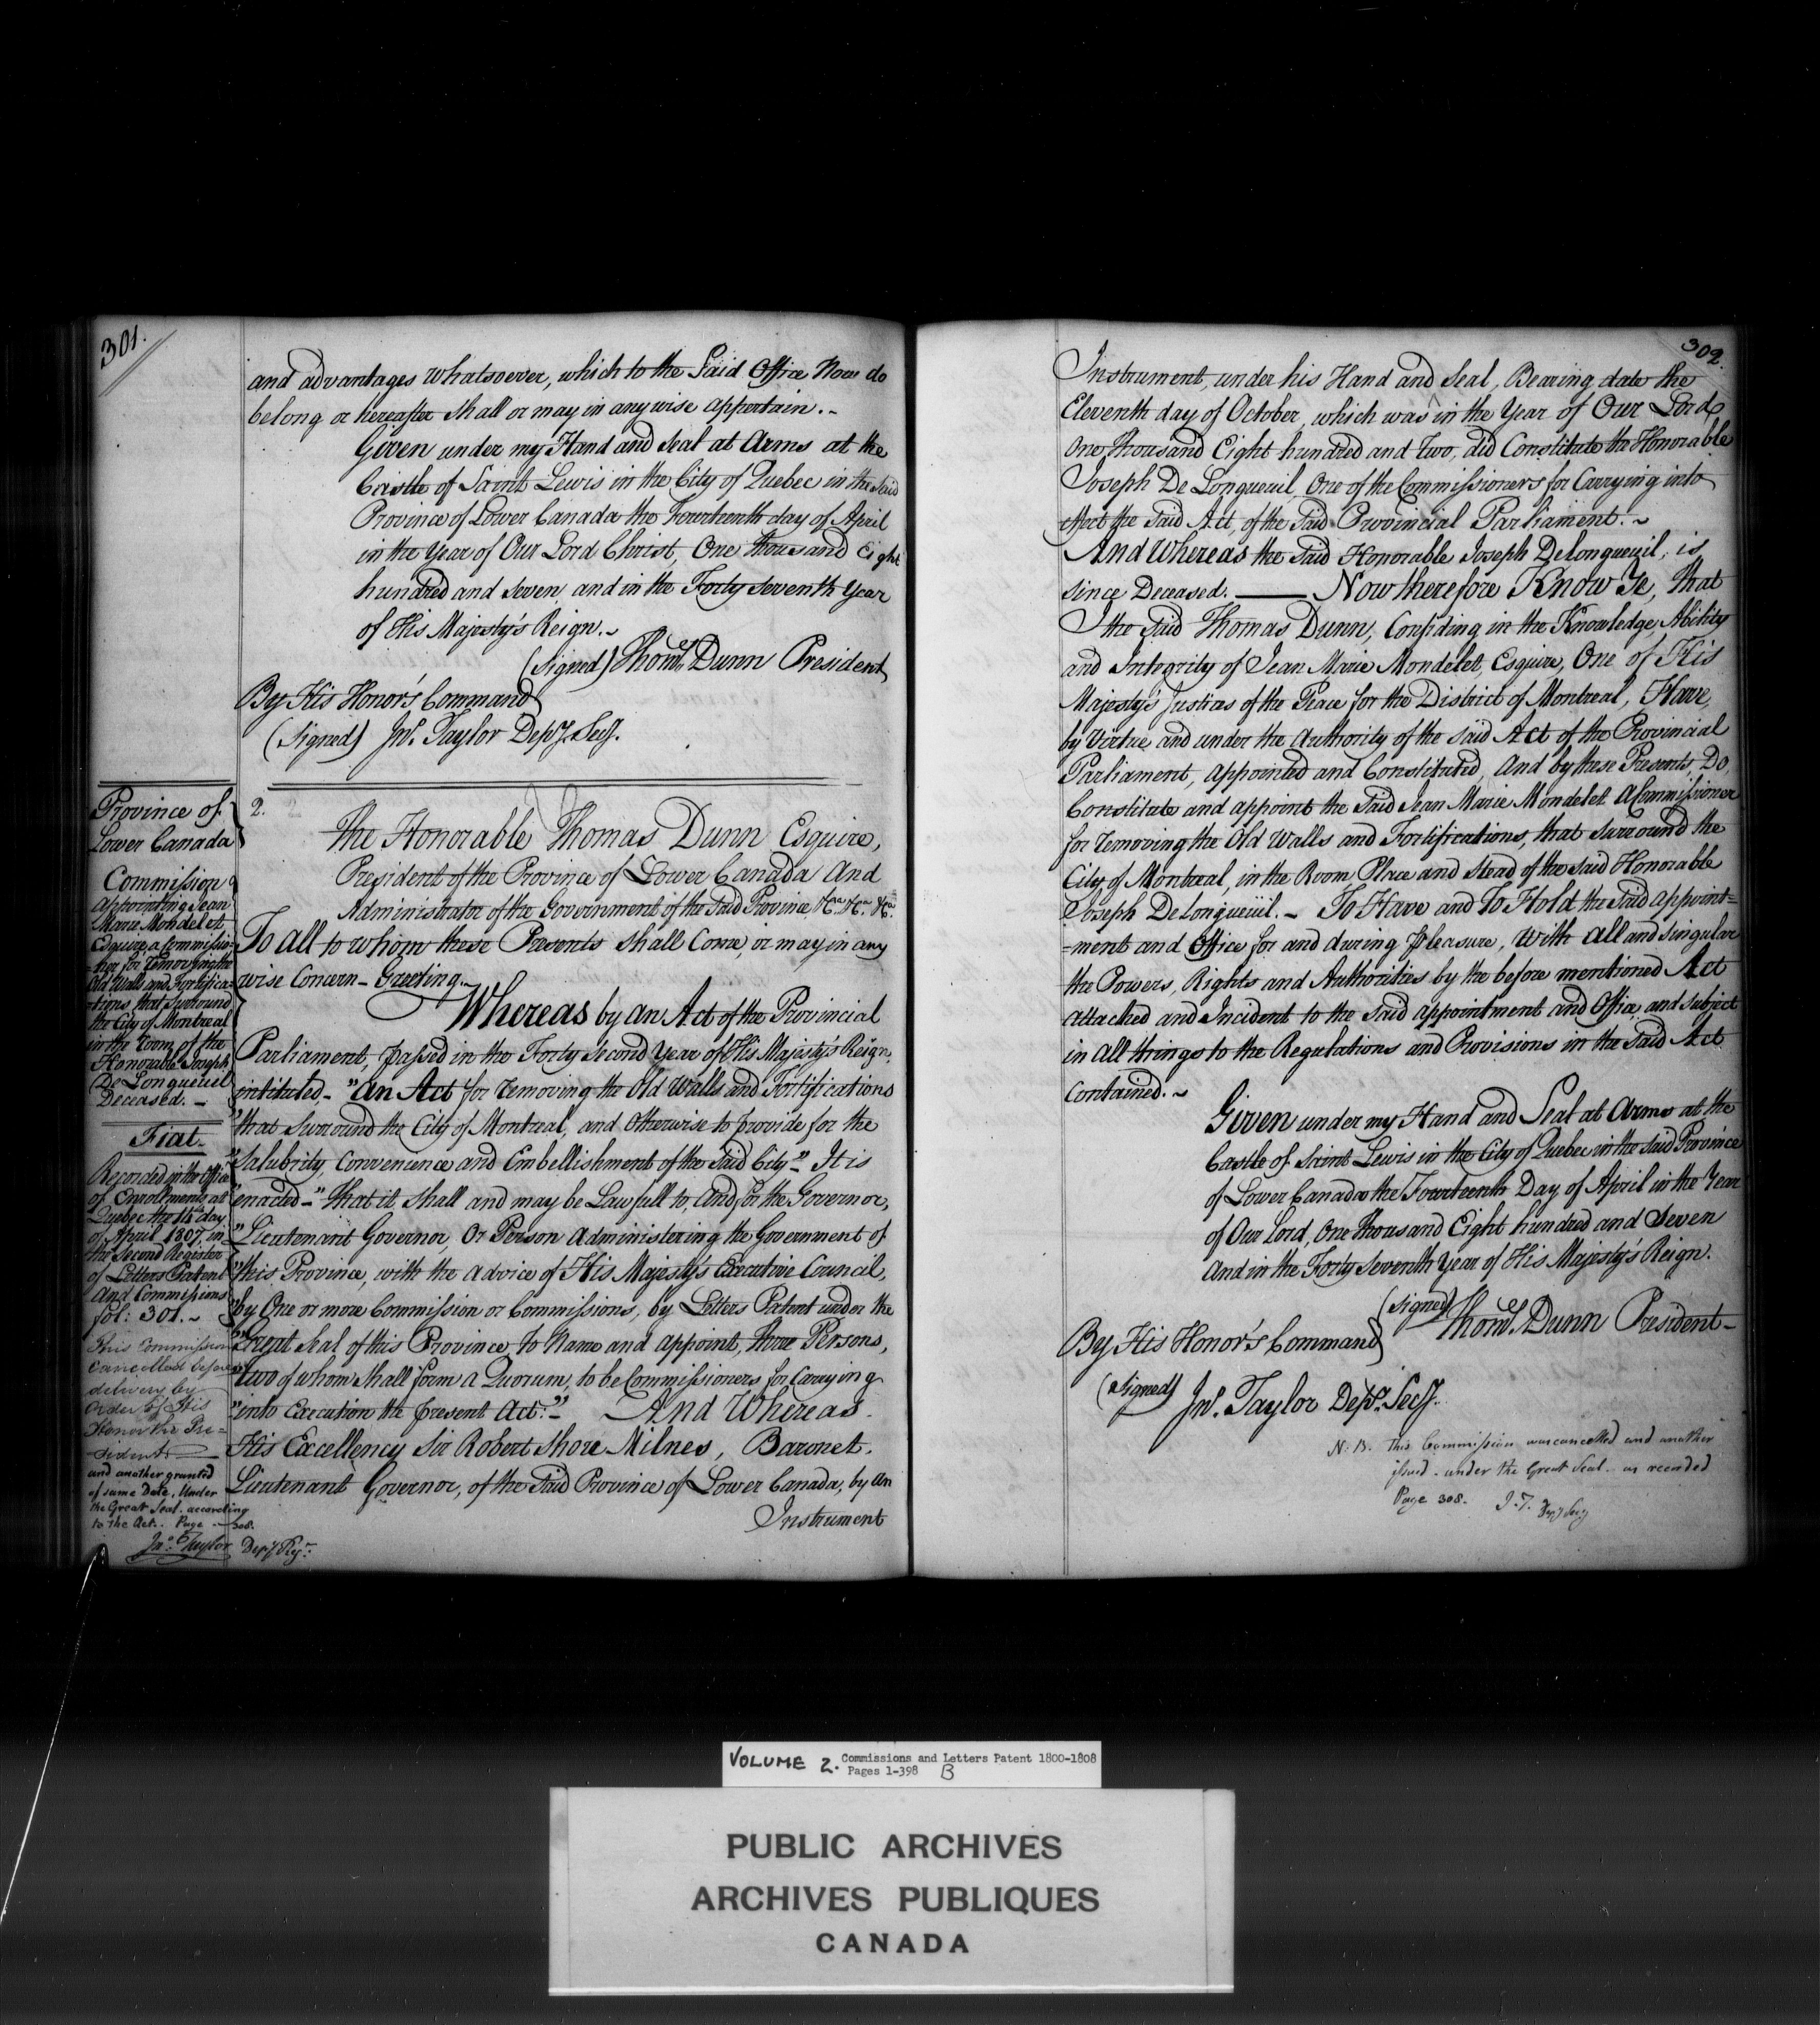 301.
and advantages whatsoever, which to the Said Office Now do
belong or hereafter Shall or may in any wise appertain.-
Given under my Hand and Seal at Arms at the
Castle of Saint Lewis in the City of Quebec in the Said
Province of Lower Canada the Fourteenth day of April
in the Year of Our Lord Christ, One thousand Eight
hundred and seven and in the Forty seventh Year
of His Majesty's Reign.~
(Signed) Thoms. Dunn President
By His Honor's Command
(Signed) Jno. Taylor Depy. Secy.
Province of
Lower Canada
Commission
appointing Jean
Marie Mondelet
Esquire a Commissio-
-ner for removing the
Old Walls and Fortifica-
-tions, that Surround
the City of Montreal
in the room of the
Honorable Joseph
De Longueuil
Deceased. -
Fiat-
Recorded in the Office
of Enrollments at
Quebec the 14th day
of April 1807. in
the Second Register
of Letters Patent
And Commissions
fol: 301. ~
This Commission
cancelled before
delivery by
Order of His
Honor the Pre=
=sident
and another granted
of same Date, Under
the Great Seal. according
to the Act. Page - 308.
Jno. Taylor Depy Regr.
2.
The Honorable Thomas Dunn Esquire,
President of the Province of Lower Canada And
Administrator of the Government of the Said Province &ca. &ca. &ca.
To all to whom these Presents shall Come, or may in any
wise Concern - Greeting.~
Whereas by an Act of the Provincial
Parliament, passed in the Forty Second Year of His Majesty's Reign,
intituled - "An Act for removing the Old Walls and Fortifications
"that Surround the City of Montreal, and Otherwise to provide for the
"Salubrity Convenience and Embellishment of the Said City" It is
"enacted -" That it, Shall and may be Lawfull to, and for the Governor,
"Lieutenant Governor, Or Person Administering the Government of
"this Province, with the advice of His Majesty's Executive Council,
"by One or more Commission or Commissions, by Letters Patent under the
"Great Seal of this Province, to Name and appoint, three Persons,
"two of whom Shall form a Quorum, to be Commissioners for Carrying
"into Execution the present Act."- And Whereas
His Excellency Sir Robert Shore Milnes, Baronet.
Lieutenant Governor, of the Said Province of Lower Canada, by an
Instrument
302.
Instrument, under his Hand and Seal, Bearing date the
Eleventh day of October, which was in the Year of Our Lord,
One thousand Eight hundred and Two, did Constitute the Honorable
Joseph De Longueuil, One of the Commissioners for Carrying into
effect the Said Act, of the Said Provincial Parliament.~
And Whereas the Said Honorable Joseph DeLongueuil, is
since Deceased. —— Now therefore Know Ye, that
I the Said Thomas Dunn, Confiding in the Knowledge, Ability
and Integrity of Jean Marie Mondelet, Esquire, One of His
Majesty's Justices of the Peace for the District of Montreal, Have,
by Virtue and under the Authority of the said Act of the Provincial
Parliament, appointed and Constituted, And by these Presents, Do,
Constitute and appoint the Said Jean Marie Mondelet A Commissioner
for removing the Old Walls and Fortifications, that Surround the
City of Montreal, in the Room Place and Stead of the said Honorable
Joseph DeLongueuil.- To Have and To Hold the Said appoint=
=ment and Office for and during pleasure, With all and singular
the Powers, Rights and Authorities by the before mentioned Act
attached and Incident to the Said appointment and Office, and Subject
in all things to the Regulations and Provisions in the Said Act
Contained.~
Given under my Hand and Seal at Arms at the
Castle of Saint Lewis in the City of Quebec in the Said Province
of Lower Canada the Fourteenth Day of April in the Year
of Our Lord, One Thousand Eight hundred and Seven
And in the Forty Seventh Year of His Majesty's Reign.
(Signed) Thoms. Dunn President-
By His Honor's Command
(Signed) Jno. Taylor Depy. Secy.
N. B. This Commission was cancelled and another
issued - under the Great Seal - as recorded
Page 308. J. T. Depy Secy
VOLUME 2. Commissions and Letters Patent 1800-1808
Pages 1-398 B
PUBLIC ARCHIVES
ARCHIVES PUBLIQUES
CANADA